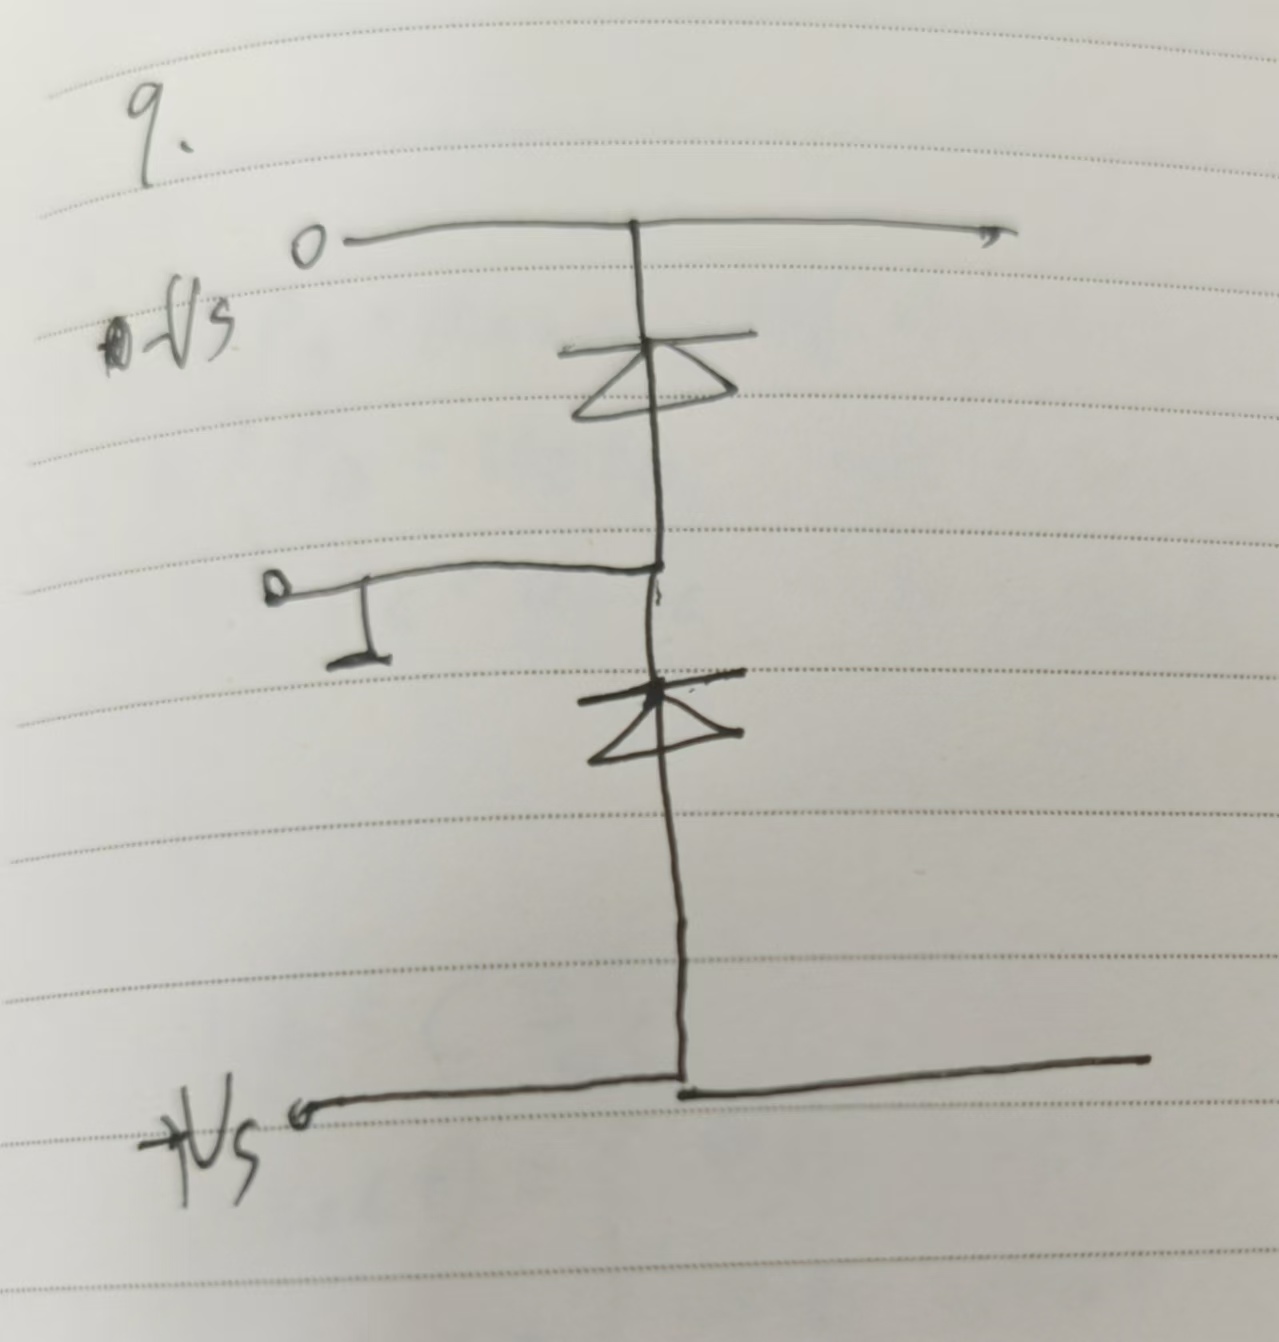 9.
-Vs
+Vs